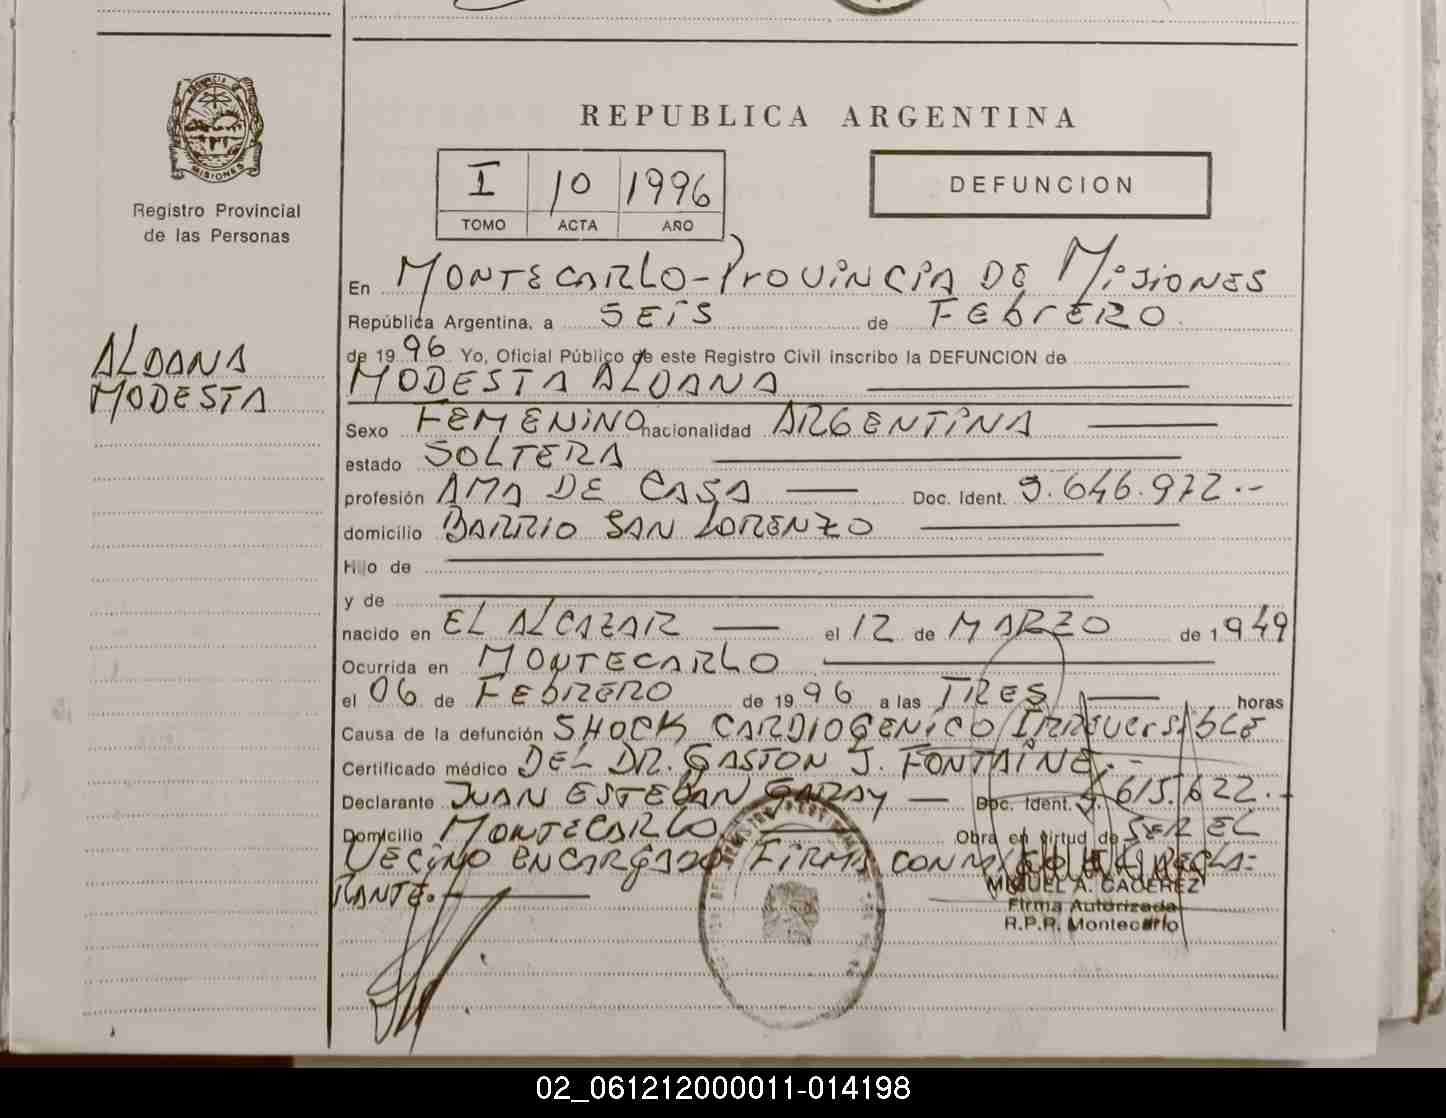 REPUBLICA ARGENTINA
I 10 1996
TOMO ACTA AÑO
DEFUNCION
PROVINCIA DE
MISIONES
Registro Provincial
de las Personas
ALDANA
MODESTA
En MONTECARLO-PrOVINCIA DE MiSiONES
República Argentina, a SEIS de FEbrERO
de 1996 Yo, Oficial Público de este Registro Civil inscribo la DEFUNCION de
MODESTA ALDANA
Sexo FEMENINO nacionalidad ARGENTINA
estado SOLTERA
profesión AMA DE CASA Doc. Ident. 5.646.972.-
domicilio BARRIO SAN LORENZO
Hijo de
y de
nacido en EL ALCAZAR el 12 de MARZO de 1949
Ocurrida en MONTECARLO
el 06 de FEbRERO de 1996 a las TRES horas
Causa de la defunción SHOCK CARDIOGENICO IRREVerSIbLE
Certificado médico DEL DR. GASTON J. FONTAINE.-
Declarante JUAN ESTEBAN GARAY Doc. Ident. 615.622.-
Domicilio MONTECARLO Obra en virtud de SER EL
VECINO ENCARGADO. FIRMA CONMIGO EL DECLA-
RANTE.
MIGUEL A. CACEREZ
Firma Autorizada
R.P.R. Montecarlo
02_061212000011-014198